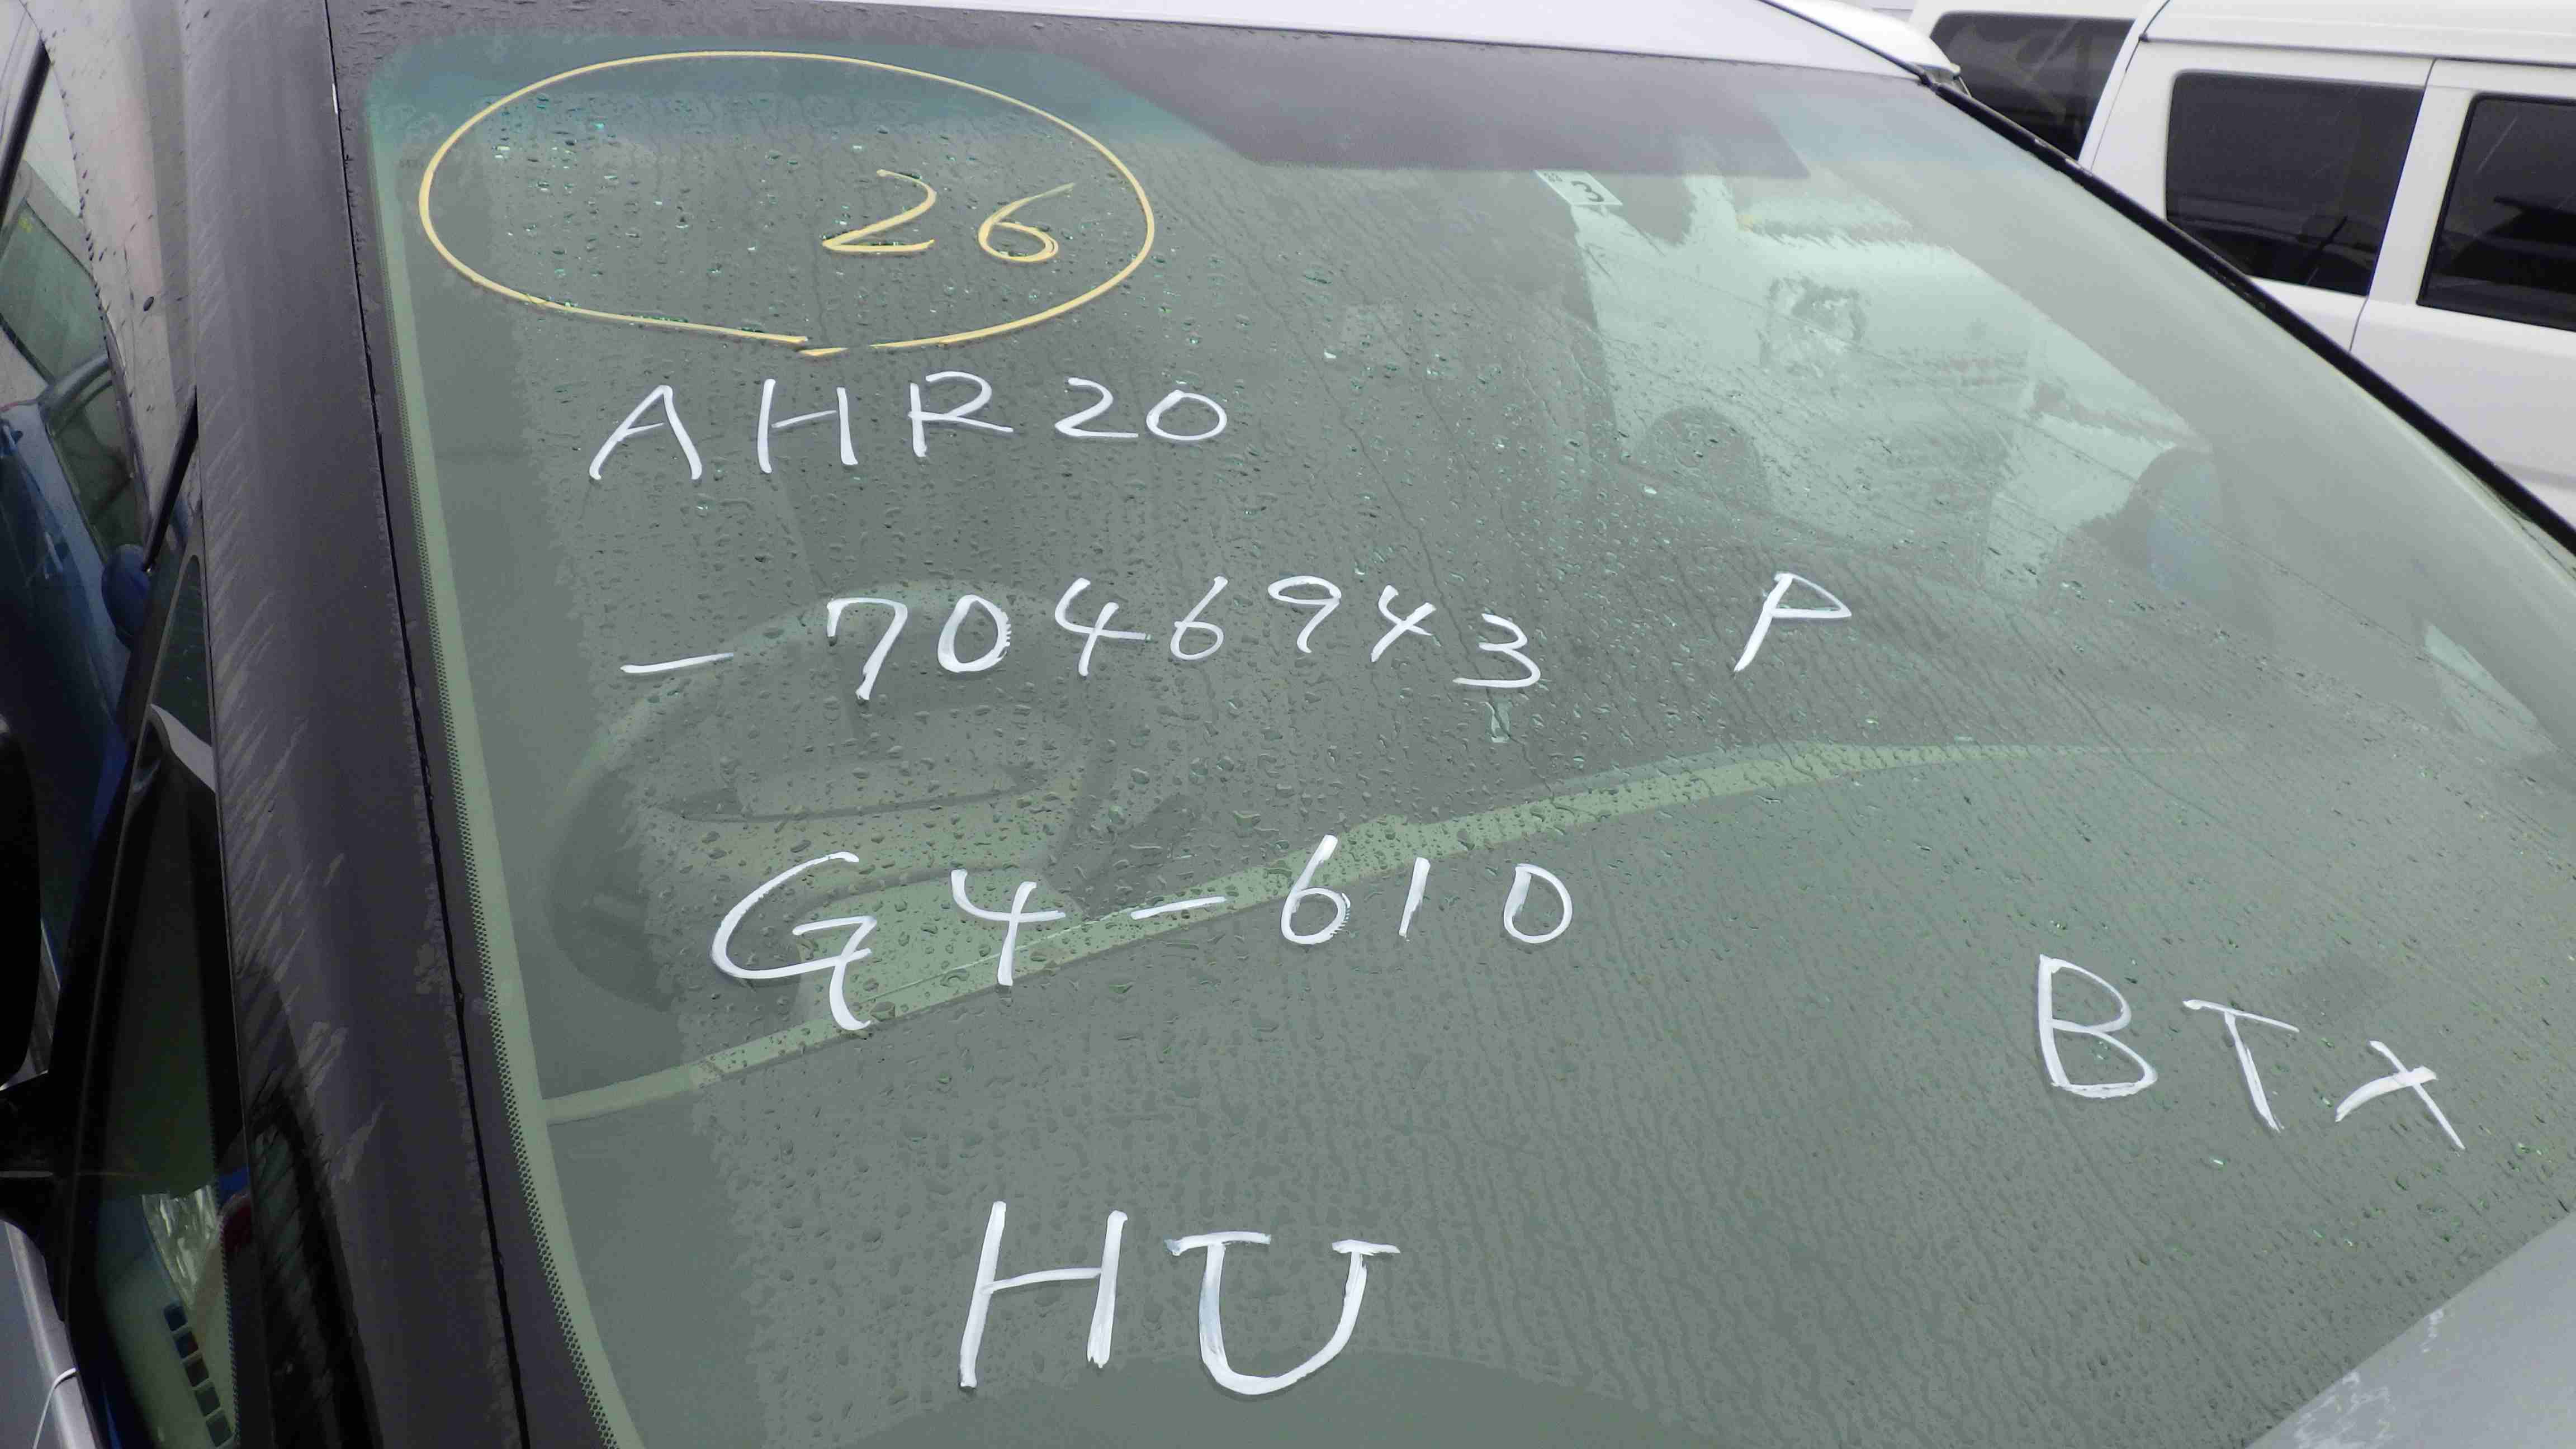 26
3
AHR20
-7046943 P
G4-610
BTX
HU